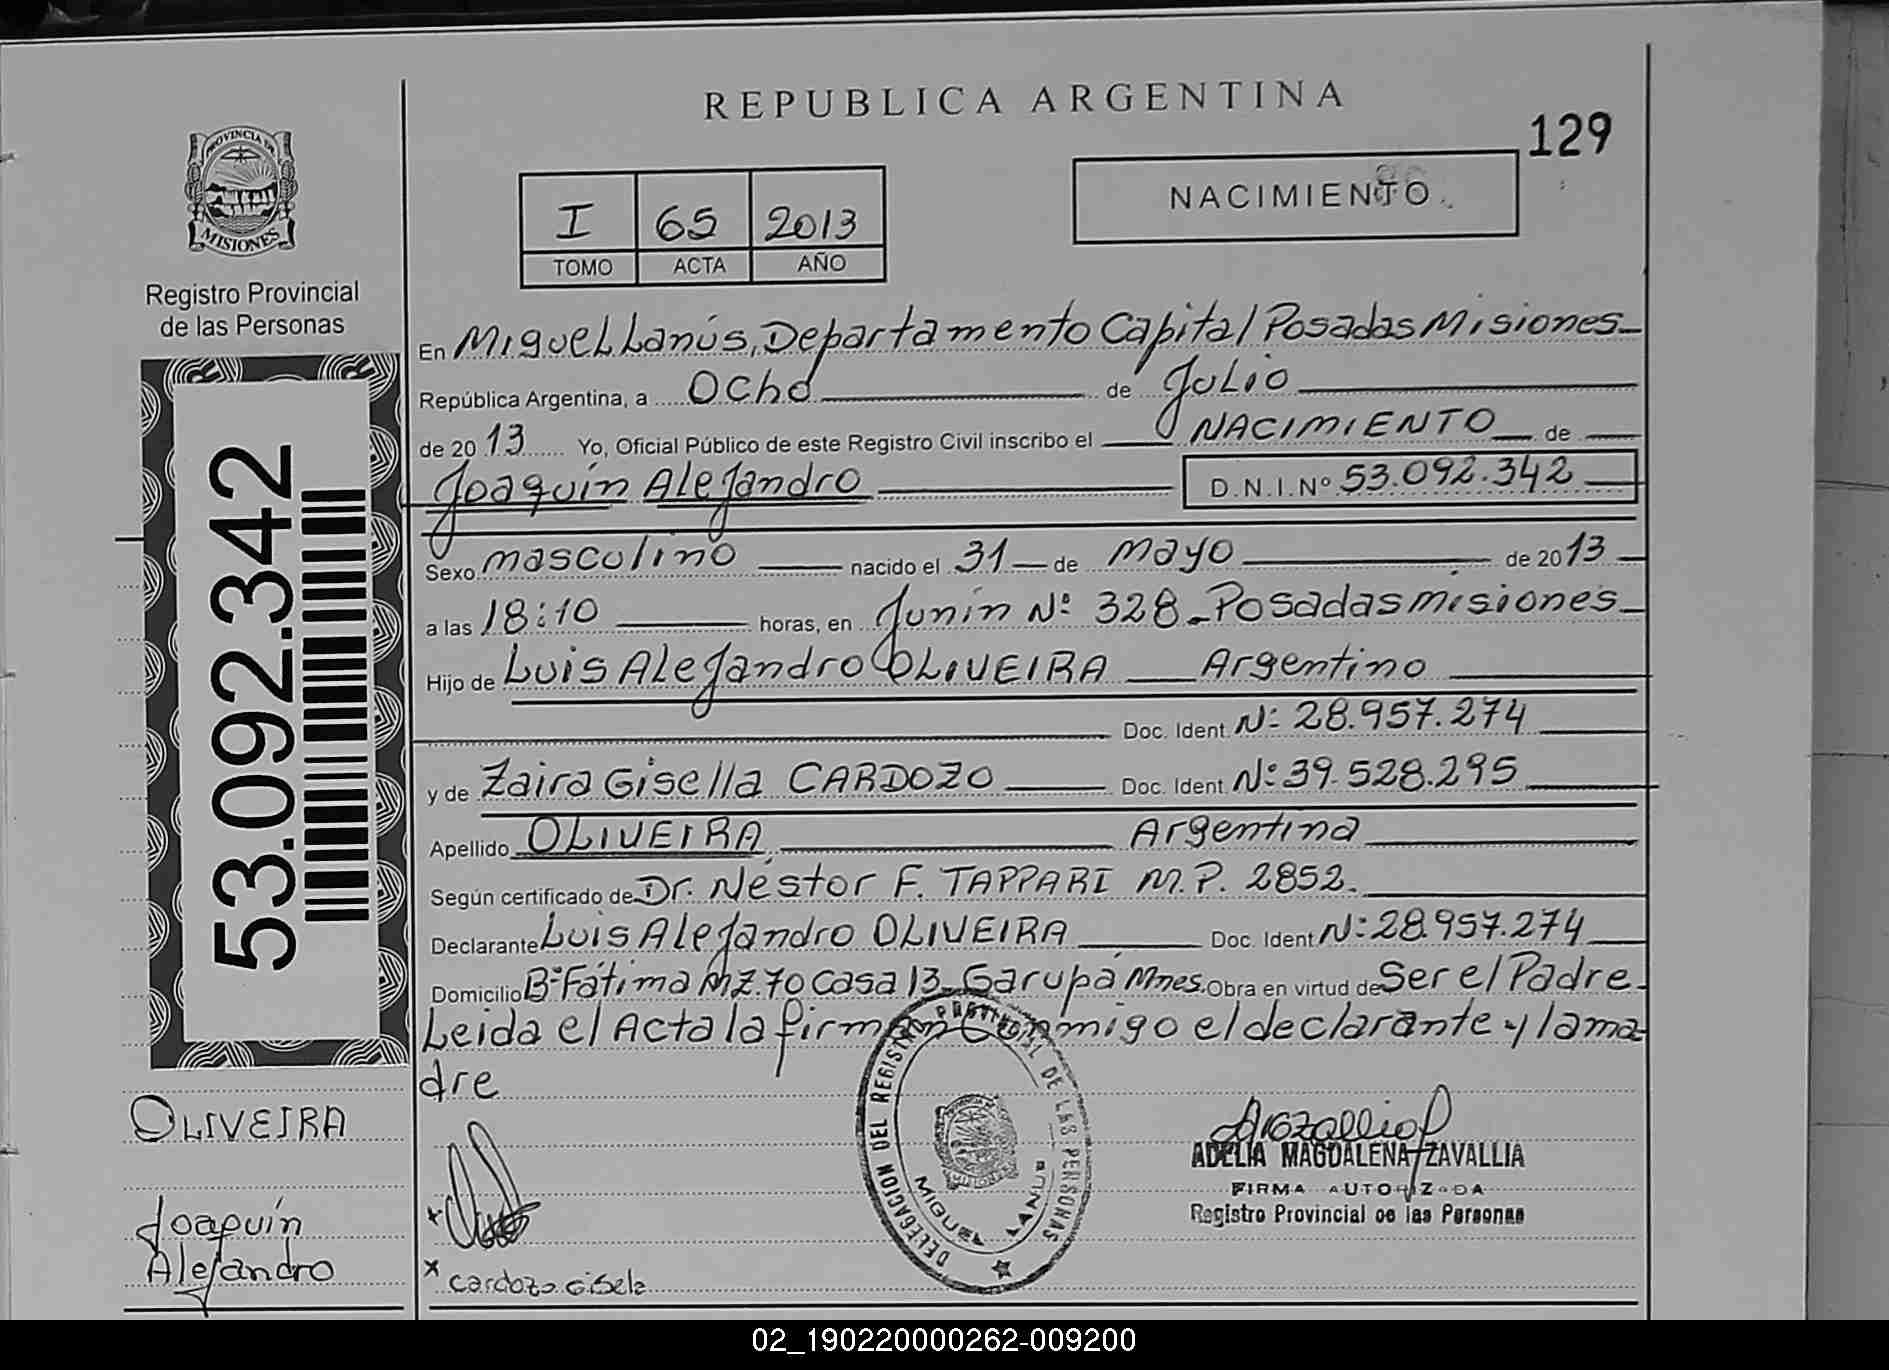 REPUBLICA ARGENTINA
129
PROVINCIA DE
MISIONES
Registro Provincial
de las Personas
I 65 2013
TOMO ACTA AÑO
NACIMIENTO
53.092.342
En Miguel Lanús, Departamento Capital Posadas Misiones
República Argentina, a Ocho de Julio
de 2013 Yo, Oficial Público de este Registro Civil inscribo el NACIMIENTO de
Joaquín Alejandro D.N.I.Nº 53.092.342
Sexo masculino nacido el 31 de mayo de 2013
a las 18:10 horas, en Junín Nº 328 - Posadas misiones
Hijo de Luis Alejandro OLIVEIRA Argentino
Doc. Ident. Nº 28.957.274
y de Zaira Gisella CARDOZO Doc. Ident. Nº 39.528.295
Apellido OLIVEIRA Argentina
Según certificado de Dr. Néstor F. TAPPARI M.P. 2852.
Declarante Luis Alejandro OLIVEIRA Doc. Ident. Nº 28.957.274
Domicilio Bº Fátima MZ.70 Casa 13 - Garupá Mnes. Obra en virtud de Ser el Padre.
Leida el Acta la firman Conmigo el declarante y la ma-
dre
OLIVEIRA
Joaquín
Alejandro
DELEGACION DEL REGISTRO PROVINCIAL DE LAS PERSONAS
MIGUEL LANUS
ADELIA MAGDALENA ZAVALLIA
FIRMA AUTORIZADA
Registro Provincial de las Personas
x
x Cardozo Gisela
02_190220000262-009200